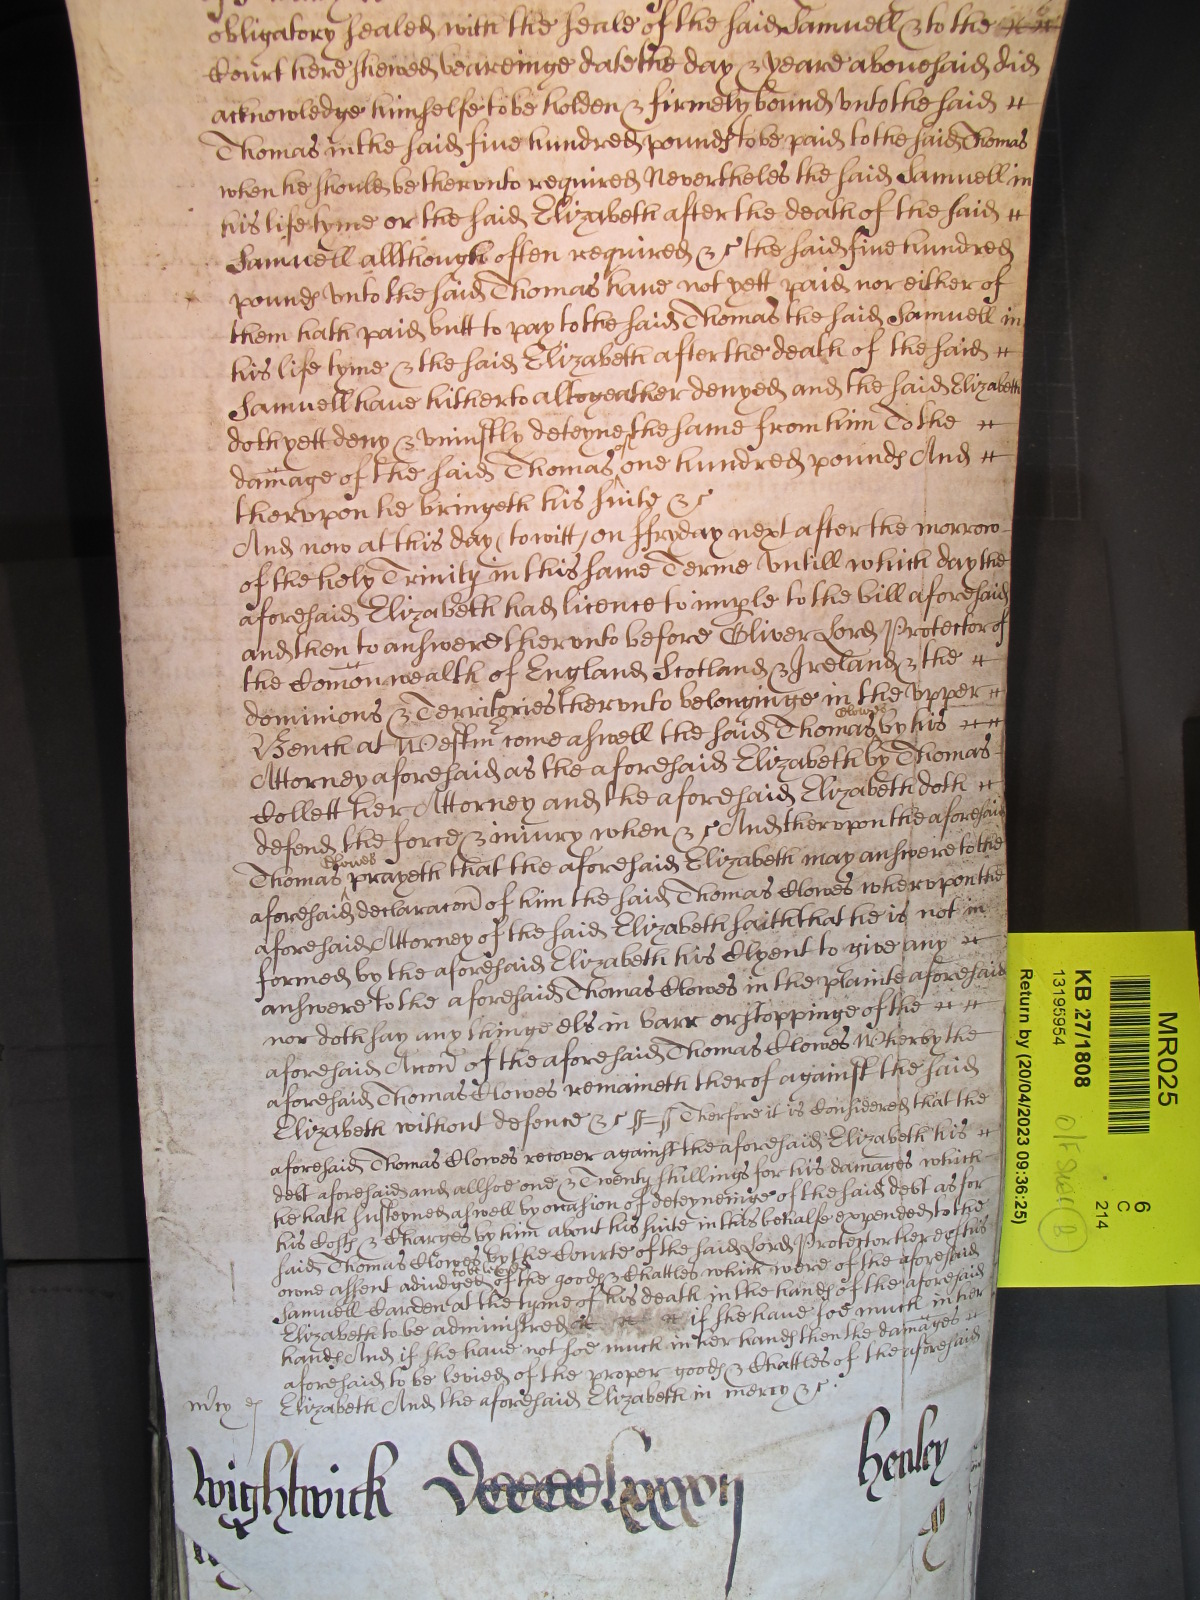 obligatory sealed with the seale of the said Samuell & to the
Court here shewed beareinge date the day & yeare abouesaid did
acknowledge himselfe to be holden & firmely bound vnto the said
Thomas in the said fiue hundred pounds to be paid to the said Thomas
when he should be thervnto required Nevertheles the said Samuell in
his life tyme or the said Elizabeth after the death of the said
Samuell allthough often required &c the said fiue hundred
pounds vnto the said Thomas haue not yett paid nor either of
them hath paid butt to pay to the said Thomas the said Samuell in
his life tyme & the said Elizabeth after the death of the said
Samuell haue hitherto altogeather denyed and the said Elizabeth
doth yett deny & vniustly deteyne the same from him To the
damage of the said Thomas of one hundred pounds And
thervpon he bringeth his suite &c
And now at this day (to witt) on ffryday next after the morrow
of the holy Trinity in this same Terme Vntill which day the
aforesaid Elizabeth had licence to imple to the bill aforesaid
and then to answere thervnto before Oliver Lord Protector of
the Comonwealth of England Scotland & Ireland & the
dominions & Territories thervnto belonginge in the vpper
Bench at Westm come aswell the said Thomas Clowes by his
Attorney aforesaid as the aforesaid Elizabeth by Thomas
Collett her Attorney and the aforesaid Elizabeth doth
defend the force & iniury when &c And thervpon the aforesaid
Thomas Clowes prayeth that the aforesaid Elizabeth may answere to the
aforesaid declaracon of him the said Thomas Clowes whervpon the
aforesaid Attorney of the said Elizabeth saith that he is not in
formed by the aforesaid Elizabeth his Clyent to give any
answere to the aforesaid Thomas Clowes in the plainte aforesaid
nor doth say any thinge els in barr or stoppinge of the
aforesaid Accon of the aforesaid Thomas Clowes Wherby the
aforesaid Thomas Clowes remaineth therof against the said
Elizabeth without defence &c Therfore it is Considered that the
aforesaid Thomas Clowes recover against the aforesaid Elizabeth his
debt aforesaid and allsoe one & Twenty shillings for his damages which
he hath susteyned aswell by occasion of deteyneinge of the said debt as for
his Costs & Charges by him about his suite in this behalfe expended to the
said Thomas Clowes by the Courte of the said Lord Protector here of his
owne assent adiudged to be levied of the goods & Chattles which were of the aforesaid
Samuell Carden at the tyme of his death in the hands of the aforesaid
Elizabeth to be administred if she haue soe much in her
hands And if she haue not soe much in her hands then the damages
aforesaid to be levied of the proper goods & Chattles of the aforesaid
Elizabeth And the aforesaid Elizabeth in mercy &c
mcy
Wightwick
Henley
MR025
6
C
214
KB 27/1808
13195954
Return by (20/04/2023 09:36:25)